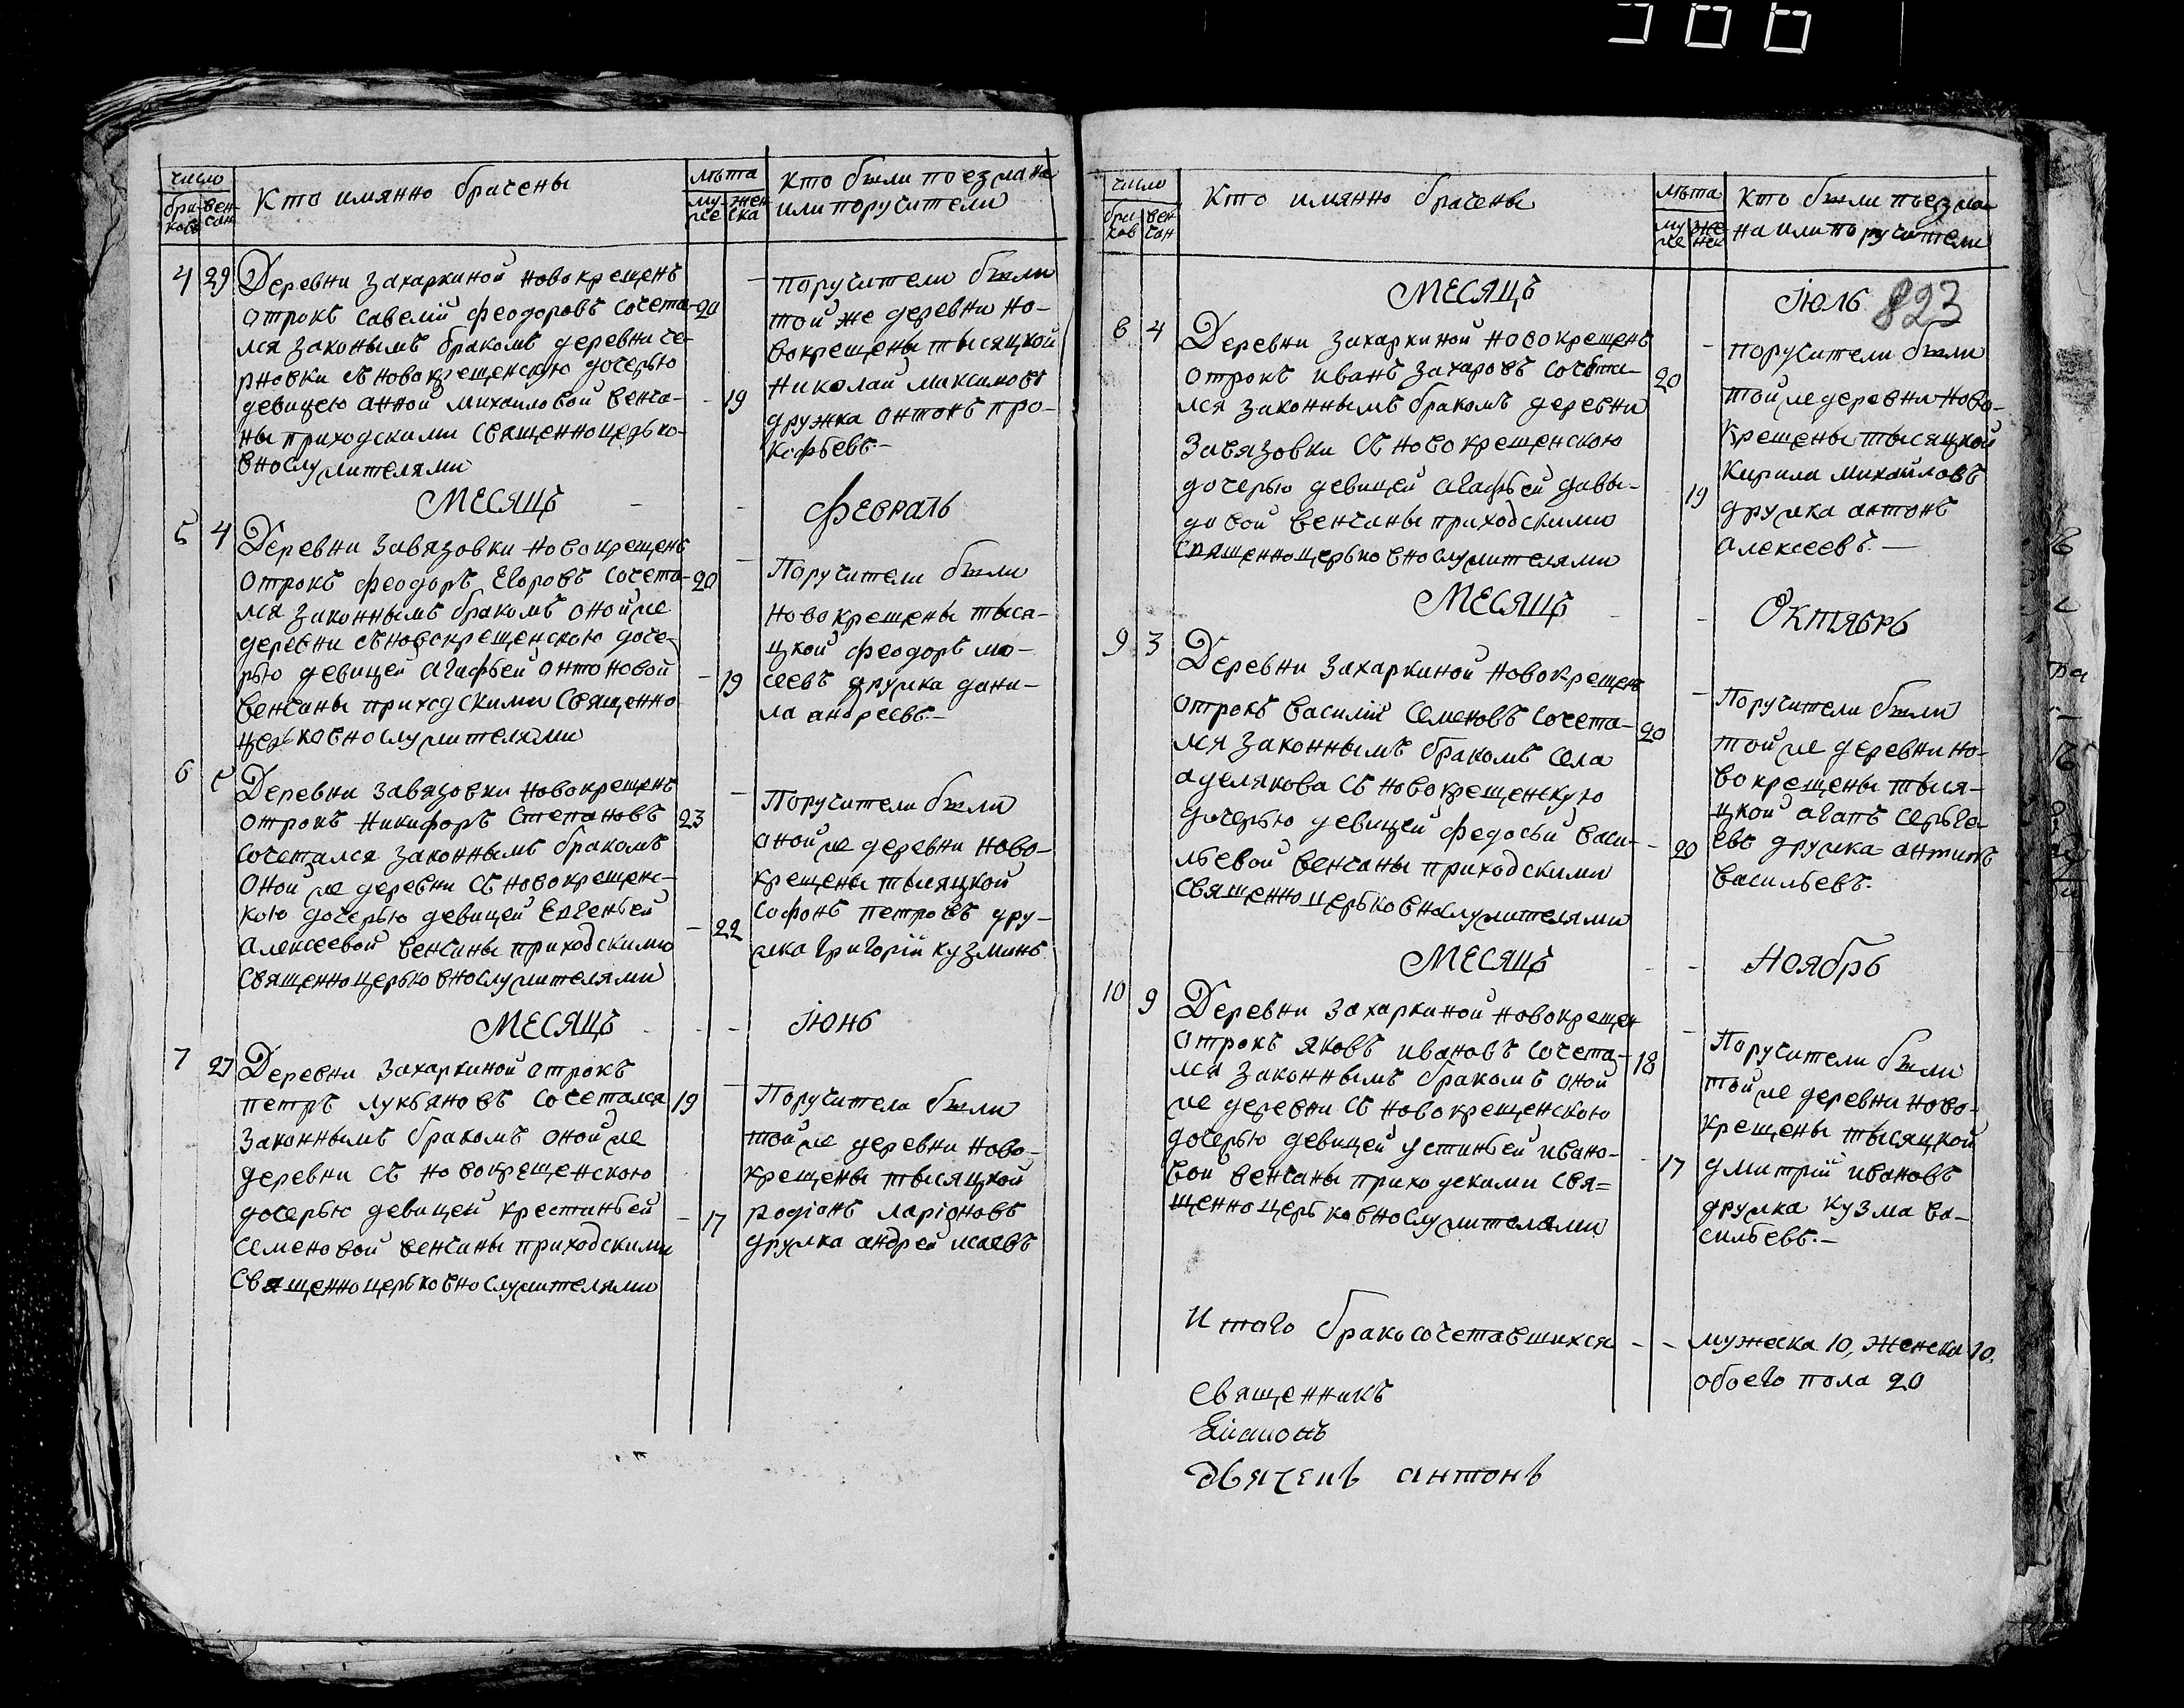 число
бра-
ковъ
вен-
чан
Кто имянно брачены
лѣта
му-
же
жен
ска
Кто были поезжана
или поручители
4 29 Деревни Захаркиной новокрещенъ
отрокъ Савелій Феодоровъ сочета- 20
лся законымъ бракомъ деревни че-
рновки съ новокрещенскую дочерью
девицею Анной Михаиловой венча- 19
ны приходскими священноцерько-
внослужителями
поручители были
той же деревни но-
вокрещены тысяцкой
Николаи Максимовъ
дружка Антонъ Про-
кофьевъ
МЕСЯЦЪ Февраль
5 4 Деревни Завязовки новокрещенъ
отрокъ Феодоръ Егоровъ сочета- 20
лся законнымъ бракомъ оной же
деревни съ новокрещенскою доче-
рью девицей Агафьей Антоновой 19
венчаны приходскими священно
церьковнослужителями
Поручители были
новокрещены тыся-
цкой Феодоръ Мо-
сеевъ дружка Дани-
ла Андреевъ
6 5 Деревни Завязовки новокрещенъ
отрокъ Никифоръ Степановъ 23
сочетался законнымъ бракомъ
оной же деревни съ новокрещенс-
кою дочерью девицей Евгеньей 22
Алексеевой венчаны приходскими
священноцерьковнослужителями
Поручители были
оной же деревни ново-
крещены тысяцкой
Софонъ Петровъ дру-
жка Григорій Кузминъ
МЕСЯЦЪ Іюнь
7 27 Деревни Захаркиной отрокъ
Петръ Лукьяновъ сочетался 19
законнымъ бракомъ оной же
деревни съ новокрещенскою
дочерью девицей Крестиньей 17
Семеновой венчаны приходскими
священноцерьковнослужителями
Поручители были
той же деревни ново-
крещены тысяцкой
Родіонъ Ларіоновъ
дружка Андрей Исаевъ
число
бра
ков
вен
чан
Кто имянно брачены
лѣта
му
же
же
нск
Кто были поезжа
на или поручители
МЕСЯЦЪ Іюль 823
8 4 Деревни Захаркиной новокрещенъ
отрокъ Иванъ Захаровъ сочѣта- 20
лся законнымъ бракомъ деревни
Завязовки съ новокрещенскою
дочерью девицей Агафьей Давы- 19
довой венчаны приходскими
священноцерьковнослужителями
поручители были
той же деревни ново-
крещены тысяцкой
Кирила Михайловъ
дружка Антонъ
Алексеевъ.
МЕСЯЦЪ Октябрь
9 3 Деревни Захаркиной новокрещенъ
отрокъ Василій Семеновъ сочета- 20
лся законнымъ бракомъ села
Аделякова съ новокрещенскую
дочерью девицей Федосьй Васи- 20
льевой венчаны приходскими
священноцерьковнослужителями
Поручители были
той же деревни но-
вокрещены тыся-
цкой Агапъ Серьге-
евъ дружка Антипъ
Васильевъ.
МЕСЯЦЪ Ноябрь
10 9 Деревни Захаркиной новокрещен
отрокъ Яковъ Ивановъ сочета- 18
лся законнымъ бракомъ оной
же деревни съ новокрещенскою
дочерью девицей Устиньей Ивано- 17
вой венчаны приходскими свя=
щенноцерьковнослужителями
Поручители были
той же деревни ново-
крещены тысяцкой
Дмитрій Ивановъ
дружка Кузма Ва-
сильевъ.
Итого бракосочетавшихся мужеска 10, женска 10,
обоего пола 20
Священникъ
Дьячекъ Антонъ